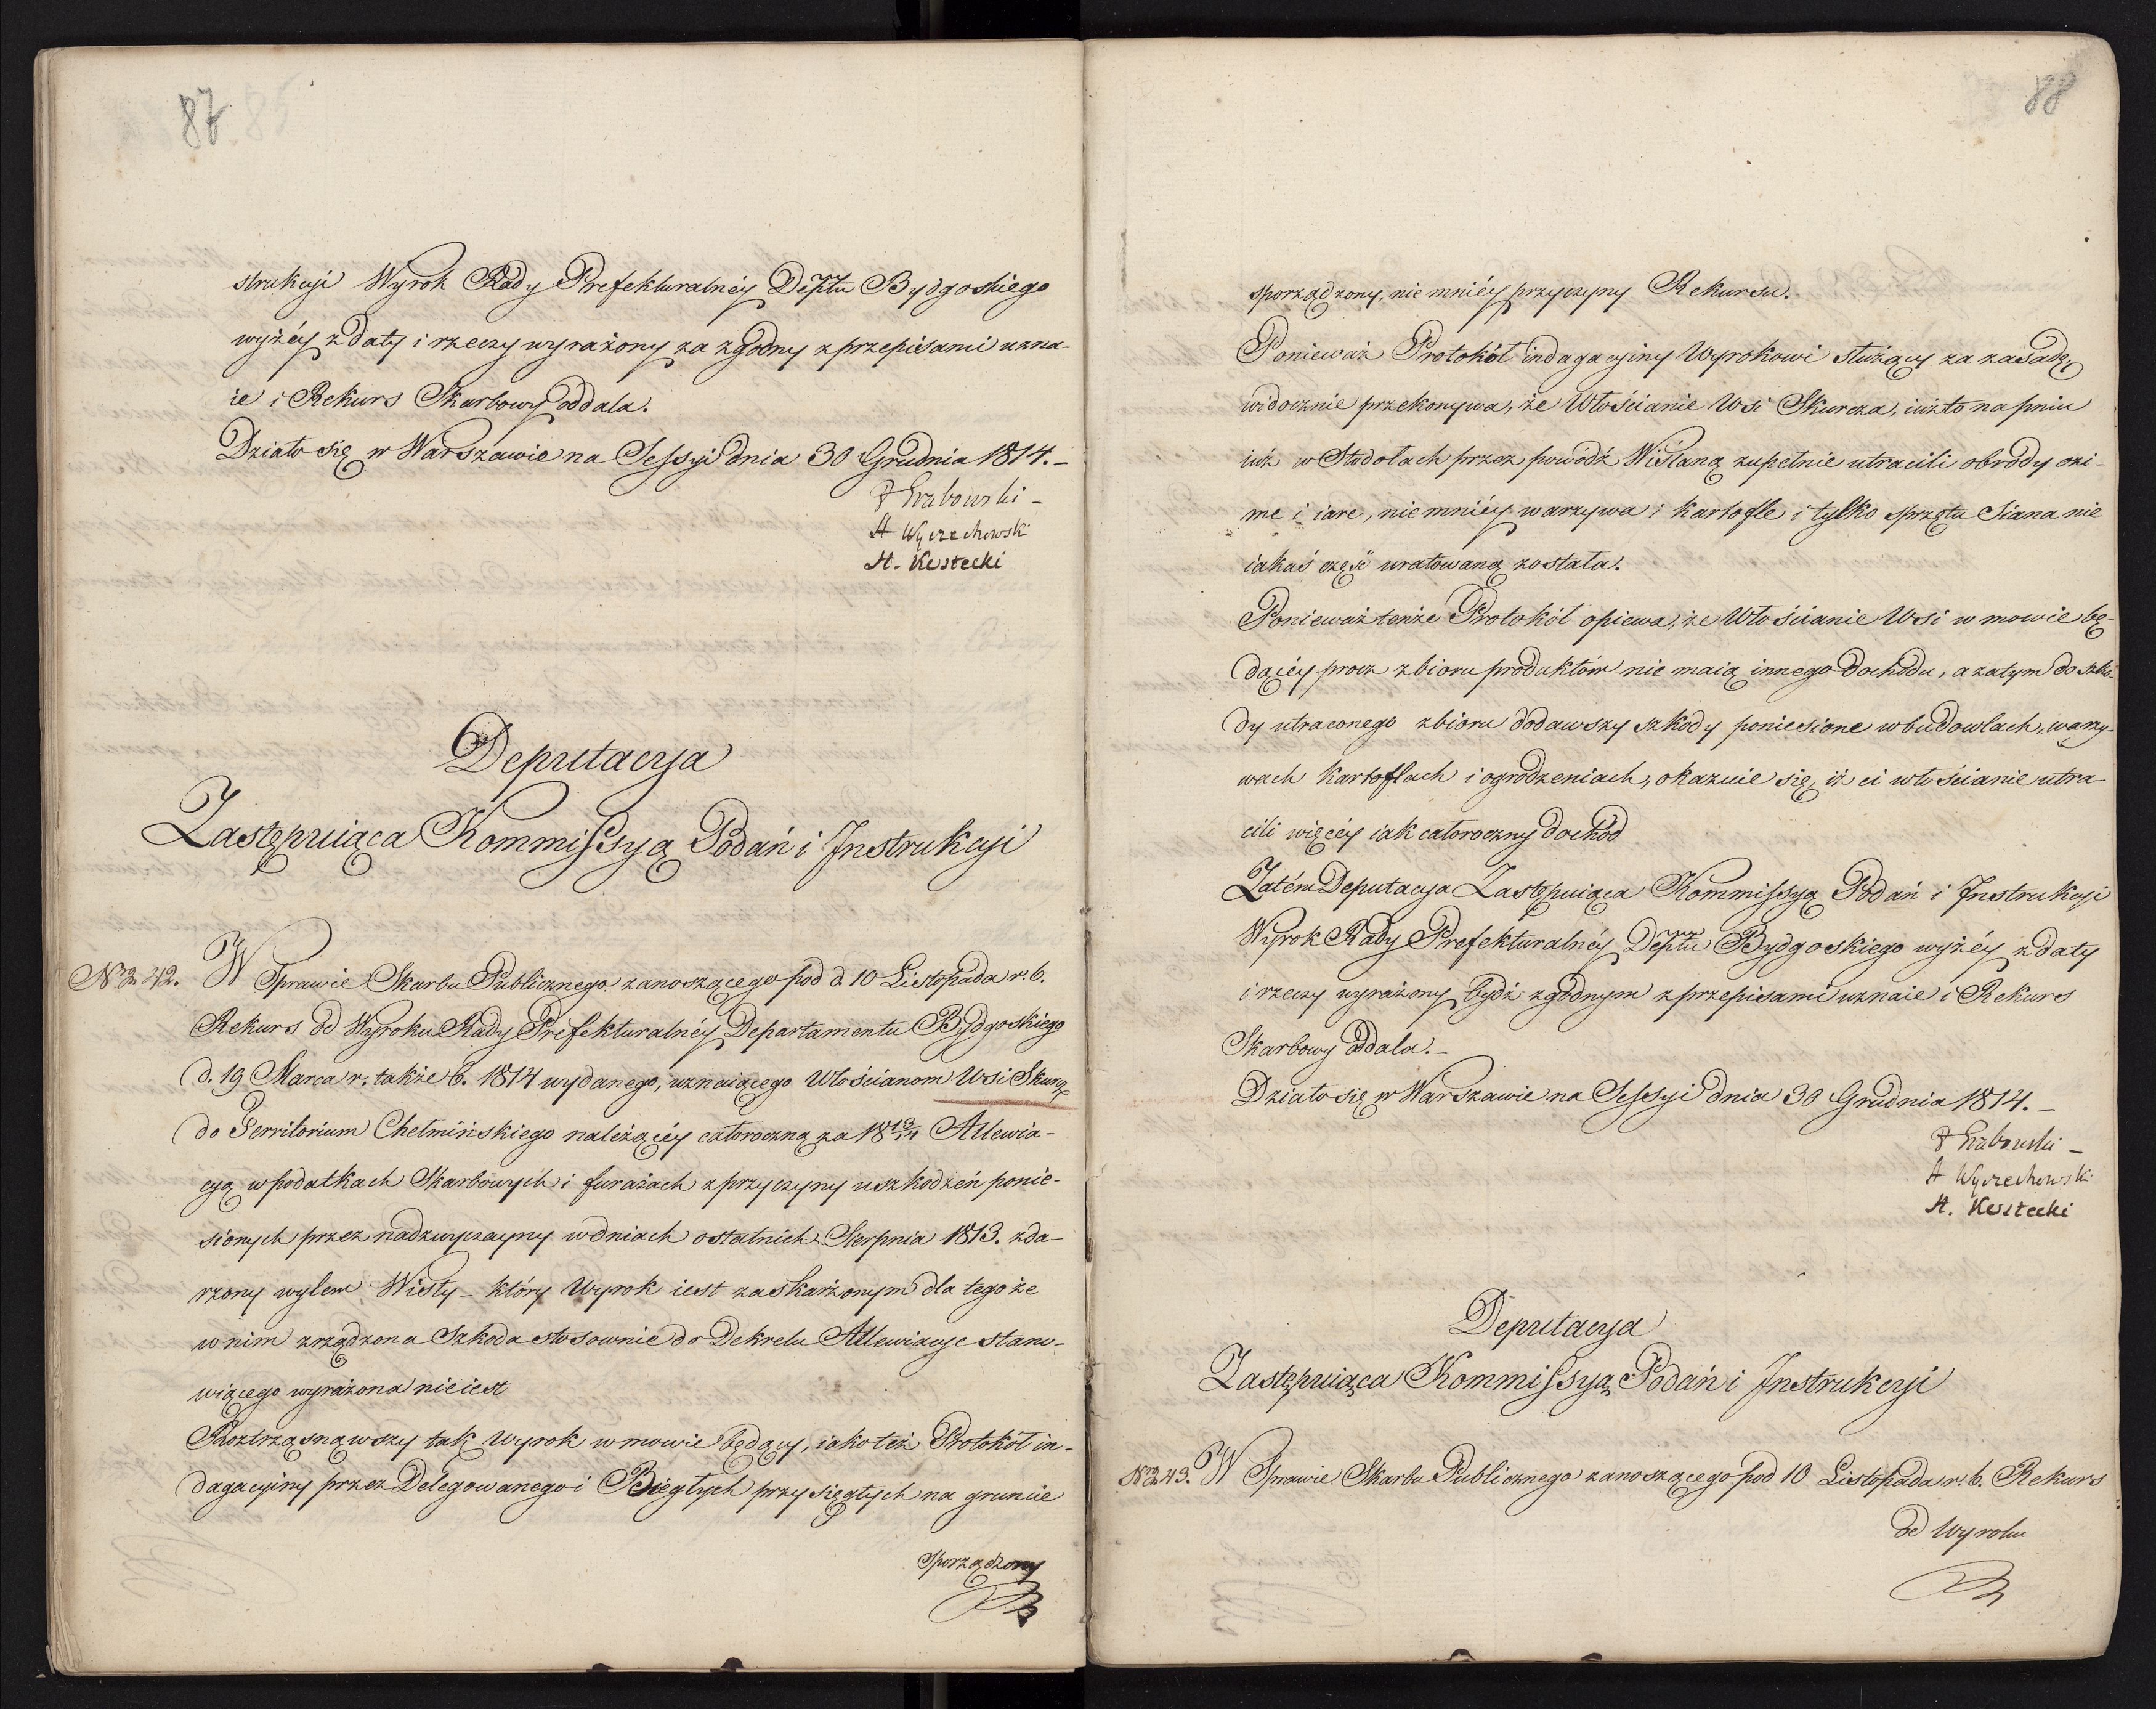 87 85
strukcyi Wyrok Rady Prefekturalnéy Deptu Bydgoskiego
wyżéy z daty i rzeczy wyrażony za zgodny z przepisami uzna-
ie i Rekurs Skarbowy oddala.
Działo się w Warszawie na Sessyi dnia 30 Grudnia 1814. –
F Grabowski –
A Wyczechowski
H. Kestecki
Deputacya
Zastępuiąca Kommissyą Podań i Instrukcyi
N 242. W Sprawie Skarbu Publicznego zanoszącego pod d. 10 Listopada r. b.
Rekurs od Wyroku Rady Prefekturalnéy Departamentu Bydgoskiego
d. 19 Marca r. także b. 1814 wydanego, uznaiącego Włościanom Wsi Skurcz
do Territorium Chełmińskiego należącéy całoroczną za 18 13/14 Allewia-
cyą w podatkach Skarbowych i furażach z przyczyny uszkodzeń ponie-
sionych przez nadzwyczayny w dniach ostatnich Sierpnia 1813. zda-
rzony wylew Wisły – który Wyrok iest zaskarżonym dla tego że
w nim zrządzona Szkoda stosownie do Dekretu Allewiacye stano-
wiącego wyrażona nie iest
Roztrząsnąwszy tak Wyrok w mowie będący, iako też Protokół in-
dagacyiny przez Delegowanego i Biegłych przysięgłych na gruncie
sporządzony
88
sporządzony, nie mniéy przyczyny Rekursu.
Ponieważ Protokół indagacyiny Wyrokowi służący za zasadę,
widocznie przekonywa, że Włościanie Wsi Skurcza, iużto na pniu
iuż w Stodołach przez powódź Wiślaną zupełnie utracili obrody ozi-
me i iare, nie mniéy warzywa i kartofle i tylko sprzętu Siana nie
iakaś część uratowaną została.
Ponieważ tenże Protokół opiewa, że Włościanie Wsi w mowie bę-
dącéy procz zbioru produktów nie maią innego dochodu, a zatym do szko-
dy utraconego zbioru dodawszy szkody poniesione w budowlach, warzy-
wach kartoflach i ogrodzeniach, okazuie się, iż ci włościanie utra-
cili więcéy iak całoroczny dochod
Zatém Deputacya Zastępuiąca Kommissyą Podań i Instrukcyi
Wyrok Rady Prefekturalnéy Deptu Bydgoskiego wyżéy z daty
i rzeczy wyrażony bydź zgodnym z przepisami uznaie i Rekurs
Skarbowy oddala. –
Działo się w Warszawie na Sessyi dnia 30 Grudnia 1814. –
F Grabowski –
A Wyczechowski
H. Kestecki
Deputacya
Zastępuiąca Kommissyą Podań i Instrukcyi
N 243. W Sprawie Skarbu Publicznego zanoszącego pod 10 Listopada r. b. Rekurs
od Wyroku